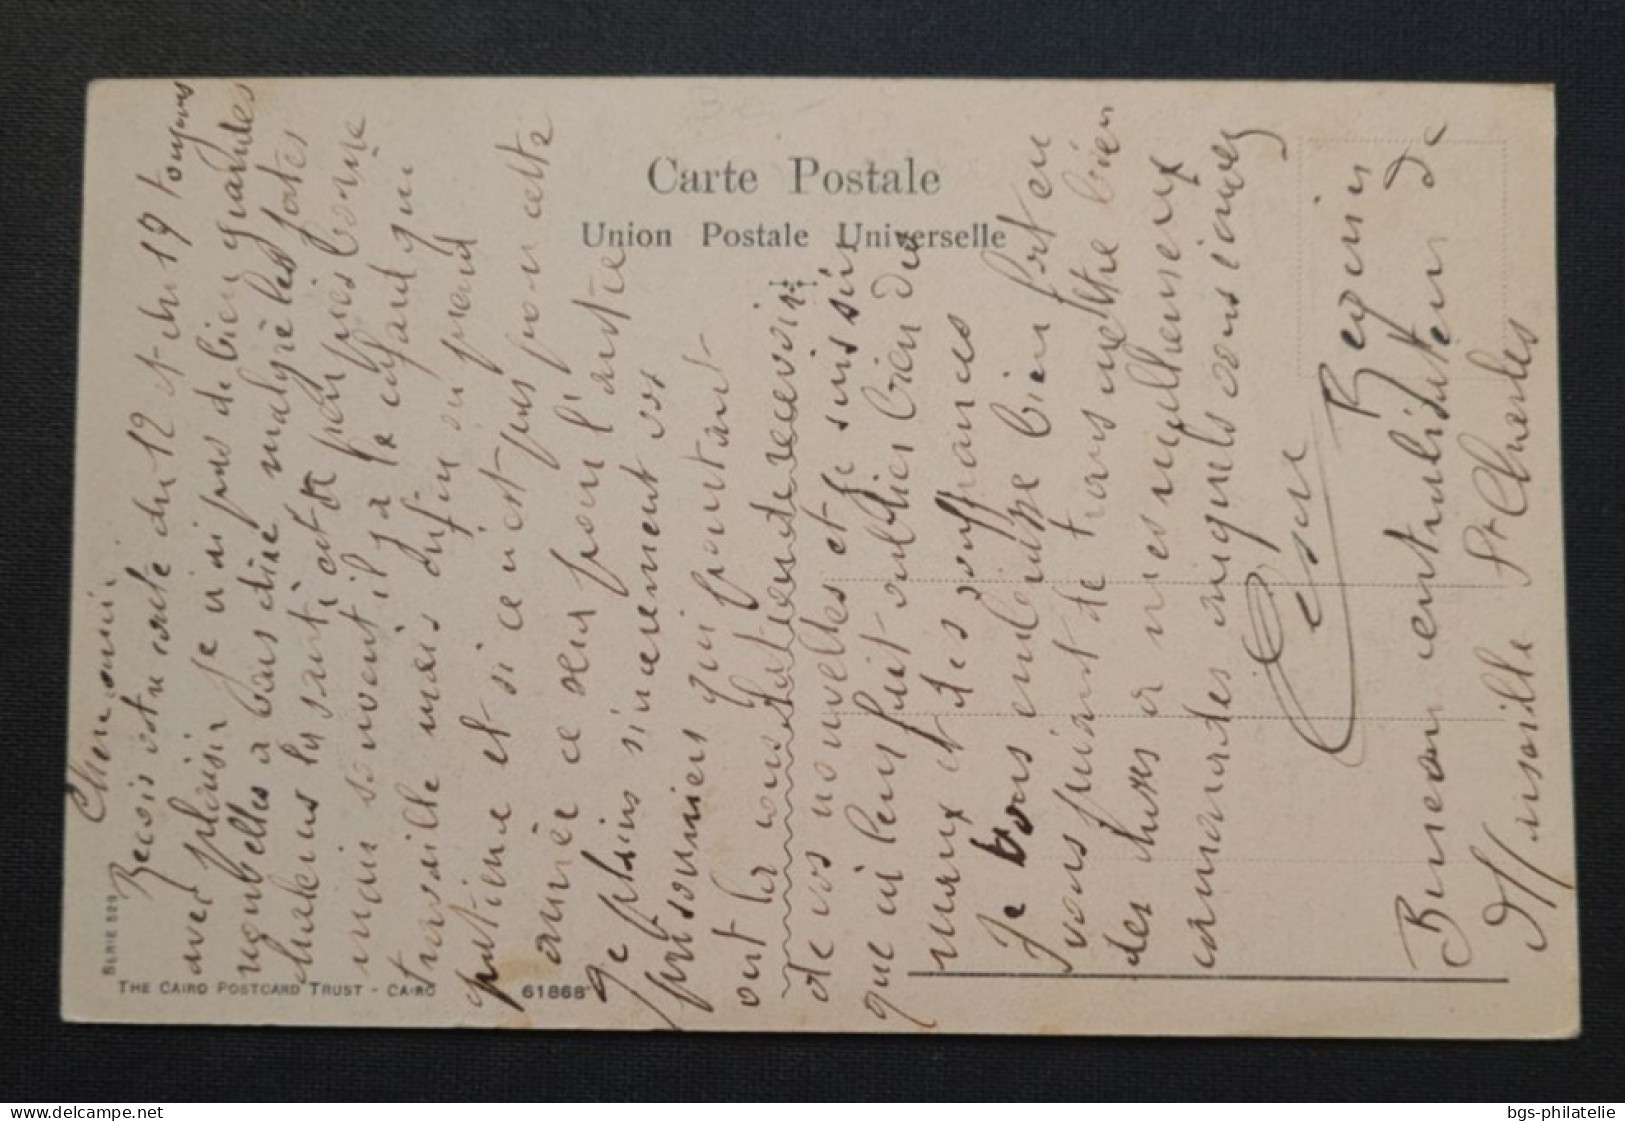 Carte Postale
Union Postale Universelle
Cher ami
Recois votre carte du 12 et du 19 toujours
avec plaisir je n'ai pas de bien grandes
nouvelles à vous dire malgré les fortes
chaleurs la santé est à peu près bonne
mais souvent il y a le cafard qui
travaille mais enfin on prend
patience et si ce n'est pas pour cette
année ce sera pour l'autre
Je plains sincèrement vos
prisonniers qui pourtant
ont la patiente recevoir
de vos nouvelles et je suis sûr
que ça leur fait oublier bien des
maux et des souffrances
Je vous embrasse bien fort en
vous priant de transmettre bien
des choses à mes malheureux
camarades auxquels vous
César
Regin
Bureau centralisateur de
Marseille St Charles
SERIE 529
THE CAIRO POSTCARD TRUST - CAIRO
61868
bgs-philatelie
www.delcampe.net